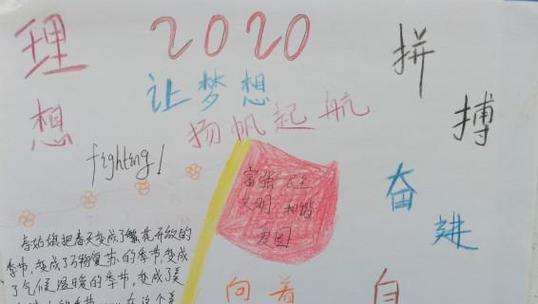 理想
2020
让梦想
扬帆起航
拼搏
奋进
fighting!
富强 民主
文明 和谐
爱国
春姑娘把春天变成了繁花开放的
季节,变成了万物复苏的季节,变成
了气候温暖的季节,变成了美
向着
自